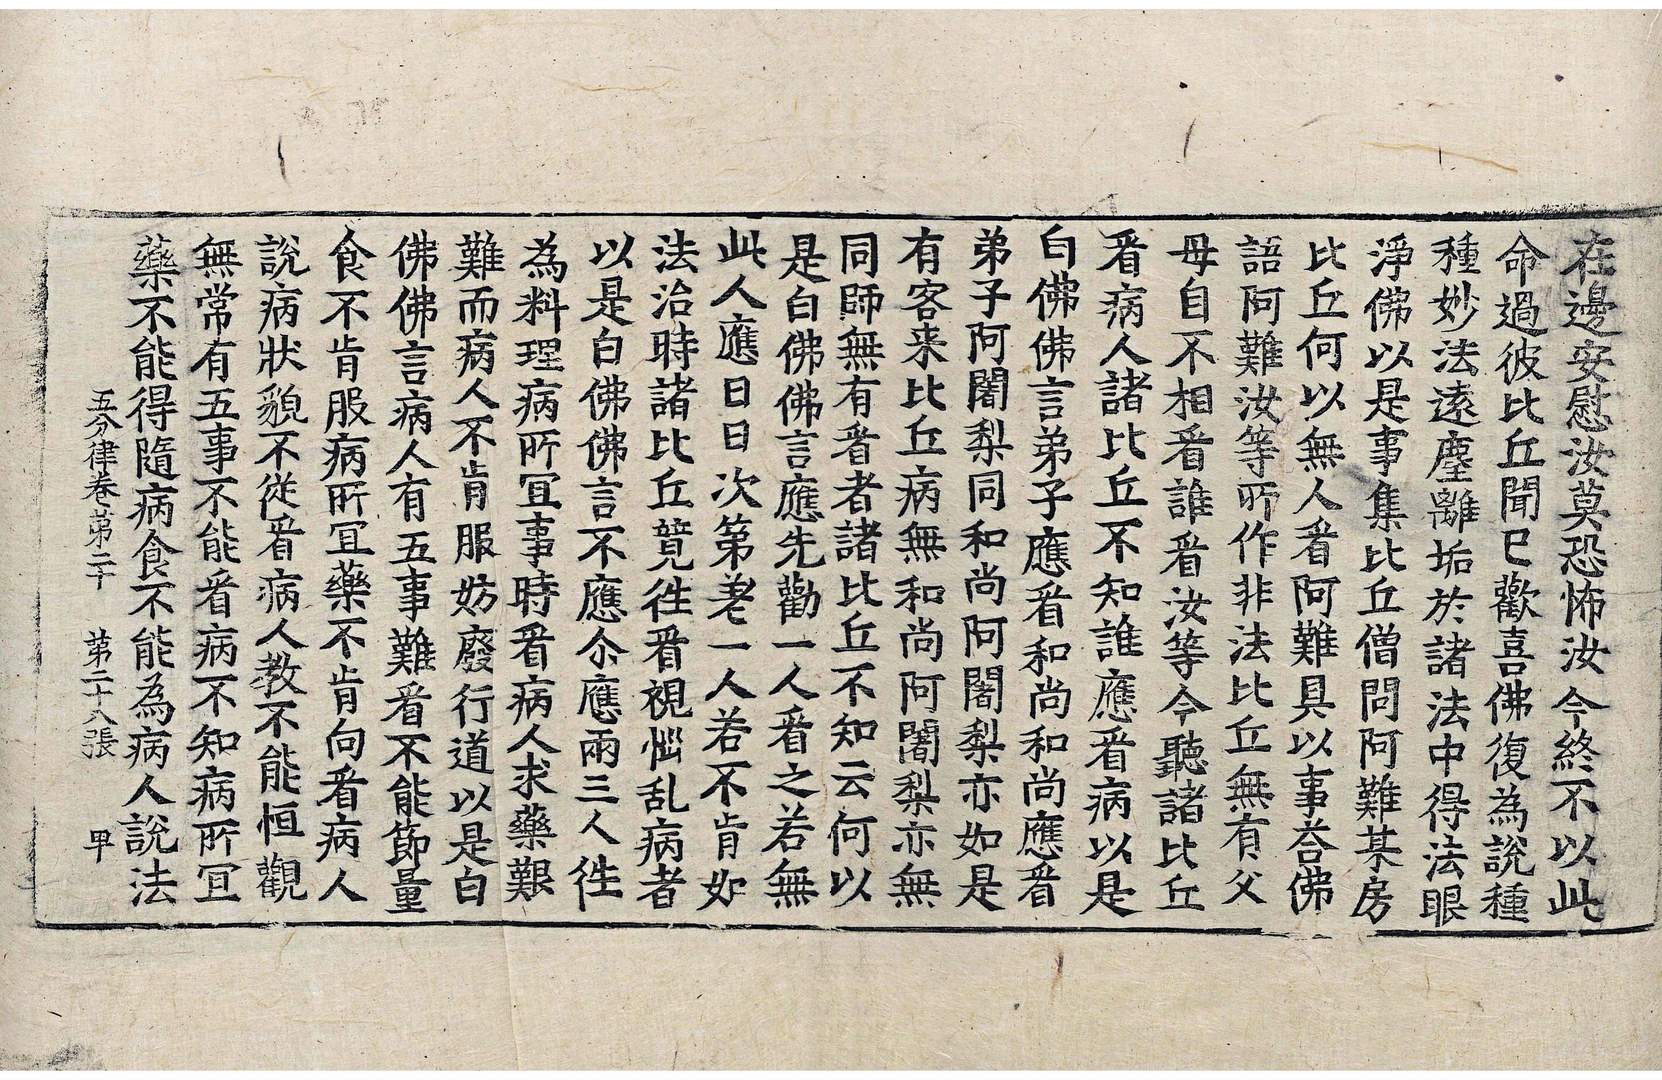 在邊安慰汝莫恐怖汝今終不以此
命過彼比丘聞已歡喜佛復為說種
種妙法遠塵離垢於諸法中得法眼
淨佛以是事集比丘僧問阿難某房
比丘何以無人㸔阿難具以事荅佛
語阿難汝等所作非法比丘無有父
母自不相㸔誰㸔汝等今聽諸比丘
㸔病人諸比丘不知誰應㸔病以是
白佛佛言弟子應㸔和尚和尚應㸔
弟子阿闍梨同和尚阿闍梨亦如是
有客来比丘病無和尚阿闍梨亦無
同師無有㸔者諸比丘不知云何以
是白佛佛言應先勸一人㸔之若無
此人應日日次第差一人若不肯如
法治時諸比丘競徃㸔視惱乱病者
以是白佛佛言不應尒應兩三人徃
為料理病所冝事時㸔病人求藥艱
難而病人不肯服妨廢行道以是白
佛佛言病人有五事難㸔不能節量
食不肯服病所冝藥不肯向㸔病人
說病狀貌不從㸔病人教不能恒觀
無常有五事不能㸔病不知病所冝
藥不能得隨病食不能為病人說法
五分律卷第二十　第二十八張　甲